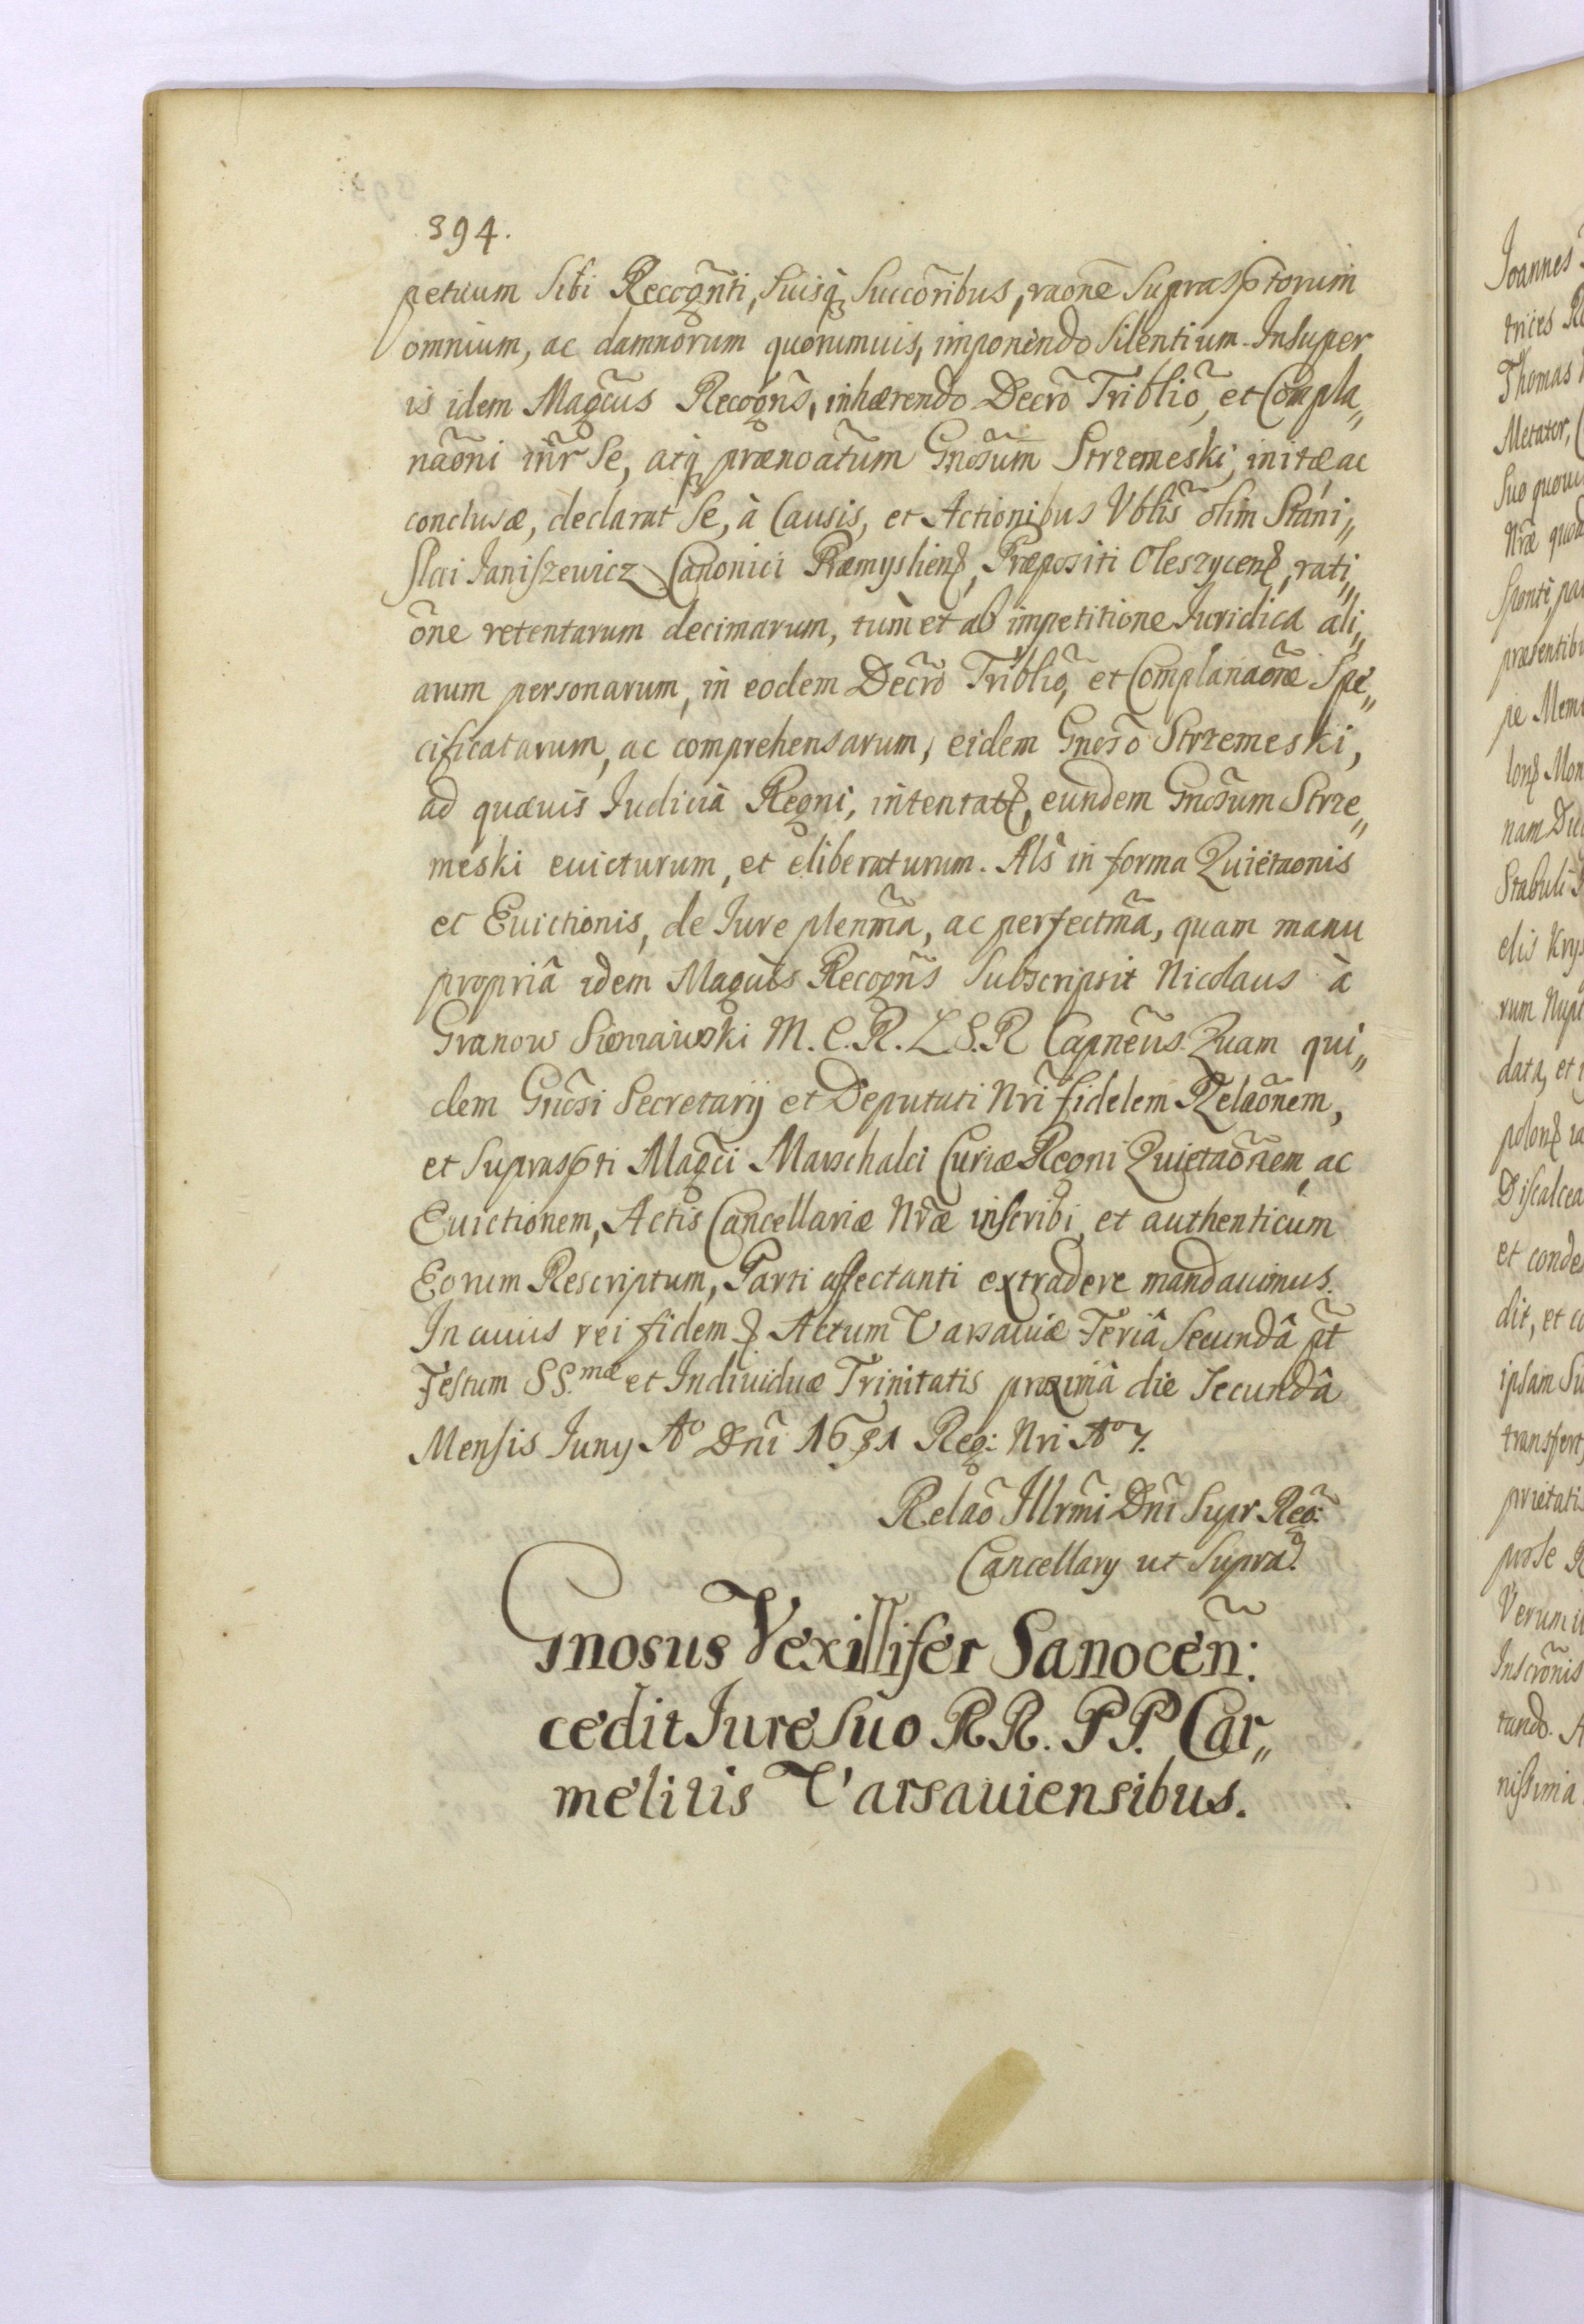 394.
petuum Sibi Recogñti, Suisq̃ Succõribus, raõne Suprasptorum
omnium, ac damnorum quorumuis, imponendo Silentium. Insuper
is idem Magc̃us Recogñs, inhærendo Decrõ Triblĩo, et Compla„
nãoni inr̃ Se, atq̃ prænoatũm Gnosũm Strzemeski, initæ ac
conclusæ, declarat Se, à Causis, et Actionibus Vblĩs olim Stani„
slai Janiszewicz Canonici Præmysliens, Præpositi Oleszycens, rati„
one retentarum decimarum, tum et ab impetitione Juridica ali„
arum personarum, in eodem Decrõ Triblĩo, et Complanaõne Spe„
cificatarum, ac comprehensarum, eidem Gnosõ Strzemeski,
ad quæuis Judicia Regni, intentatis, eundem Gnosũm Strze„
meski euicturum, et eliberaturum. Als in forma Quietaonis
et Euictionis, de Jure plenm̃a, ac perfectm̃a, quam manu
propriâ idem Magc̃us Recogñs Subscripsit Nicolaus à
Granow Sieniawski M. C. R. L. S. R Capnẽus. Quam qui„
dem Gnõsi Secretarij et Deputati Nrĩ fidelem Relaõnem,
et Supraspti Magc̃i Marschalci Curiæ Regni Quietaõnem, ac
Euictionem, Actis Cancellariæ Nr̃æ inscribi, et authenticum
Eorum Rescriptum, Parti affectanti extradere mandauimus.
In cuius rei fidem & Actum Varsauiæ Feriâ Secundâ pt̃
Festum SS.mæ et Indiuiduæ Trinitatis proximâ die Secundâ
Mensis Juny Aº Dnĩ 1681 Reg: Nri Aº 7.
Relaõ Illrm̃i Dnĩ Supr Reg:
Cancellary ut Supra.
Gnosus Vexillifer Sanocẽn:
cedit Jure Suo RR. PP. Car„
melitis Varsauiensibus.
Joannes
trices
Thomas
Metator,
Suo quouis
Nr̃æ
Sponte
præsentibus
pe
nam
Stabuli
elis
rum
data, et
Discalcea
et conde
dit, et
ipsam
transfert
prietatis
Verum
Inscrõnis
tando.
nissima